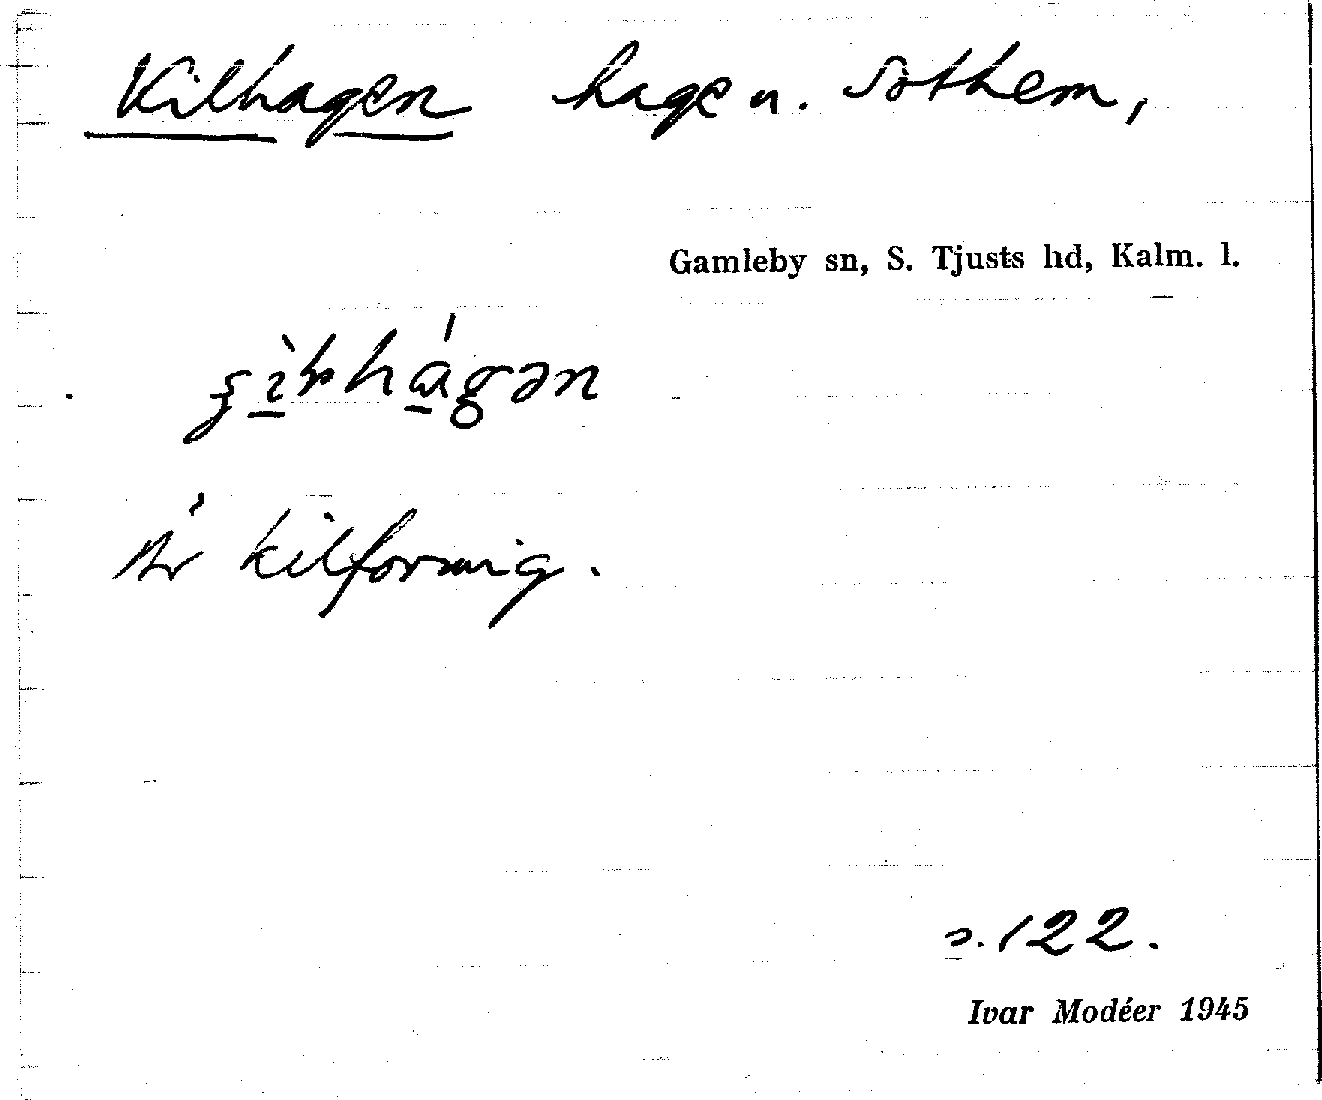 Kilhagen hage u. Sothem,
Gamleby sn, S. Tjusts hd, Kalm. l.
Är kilformig.
s. 122.
Ivar Modéer 1945